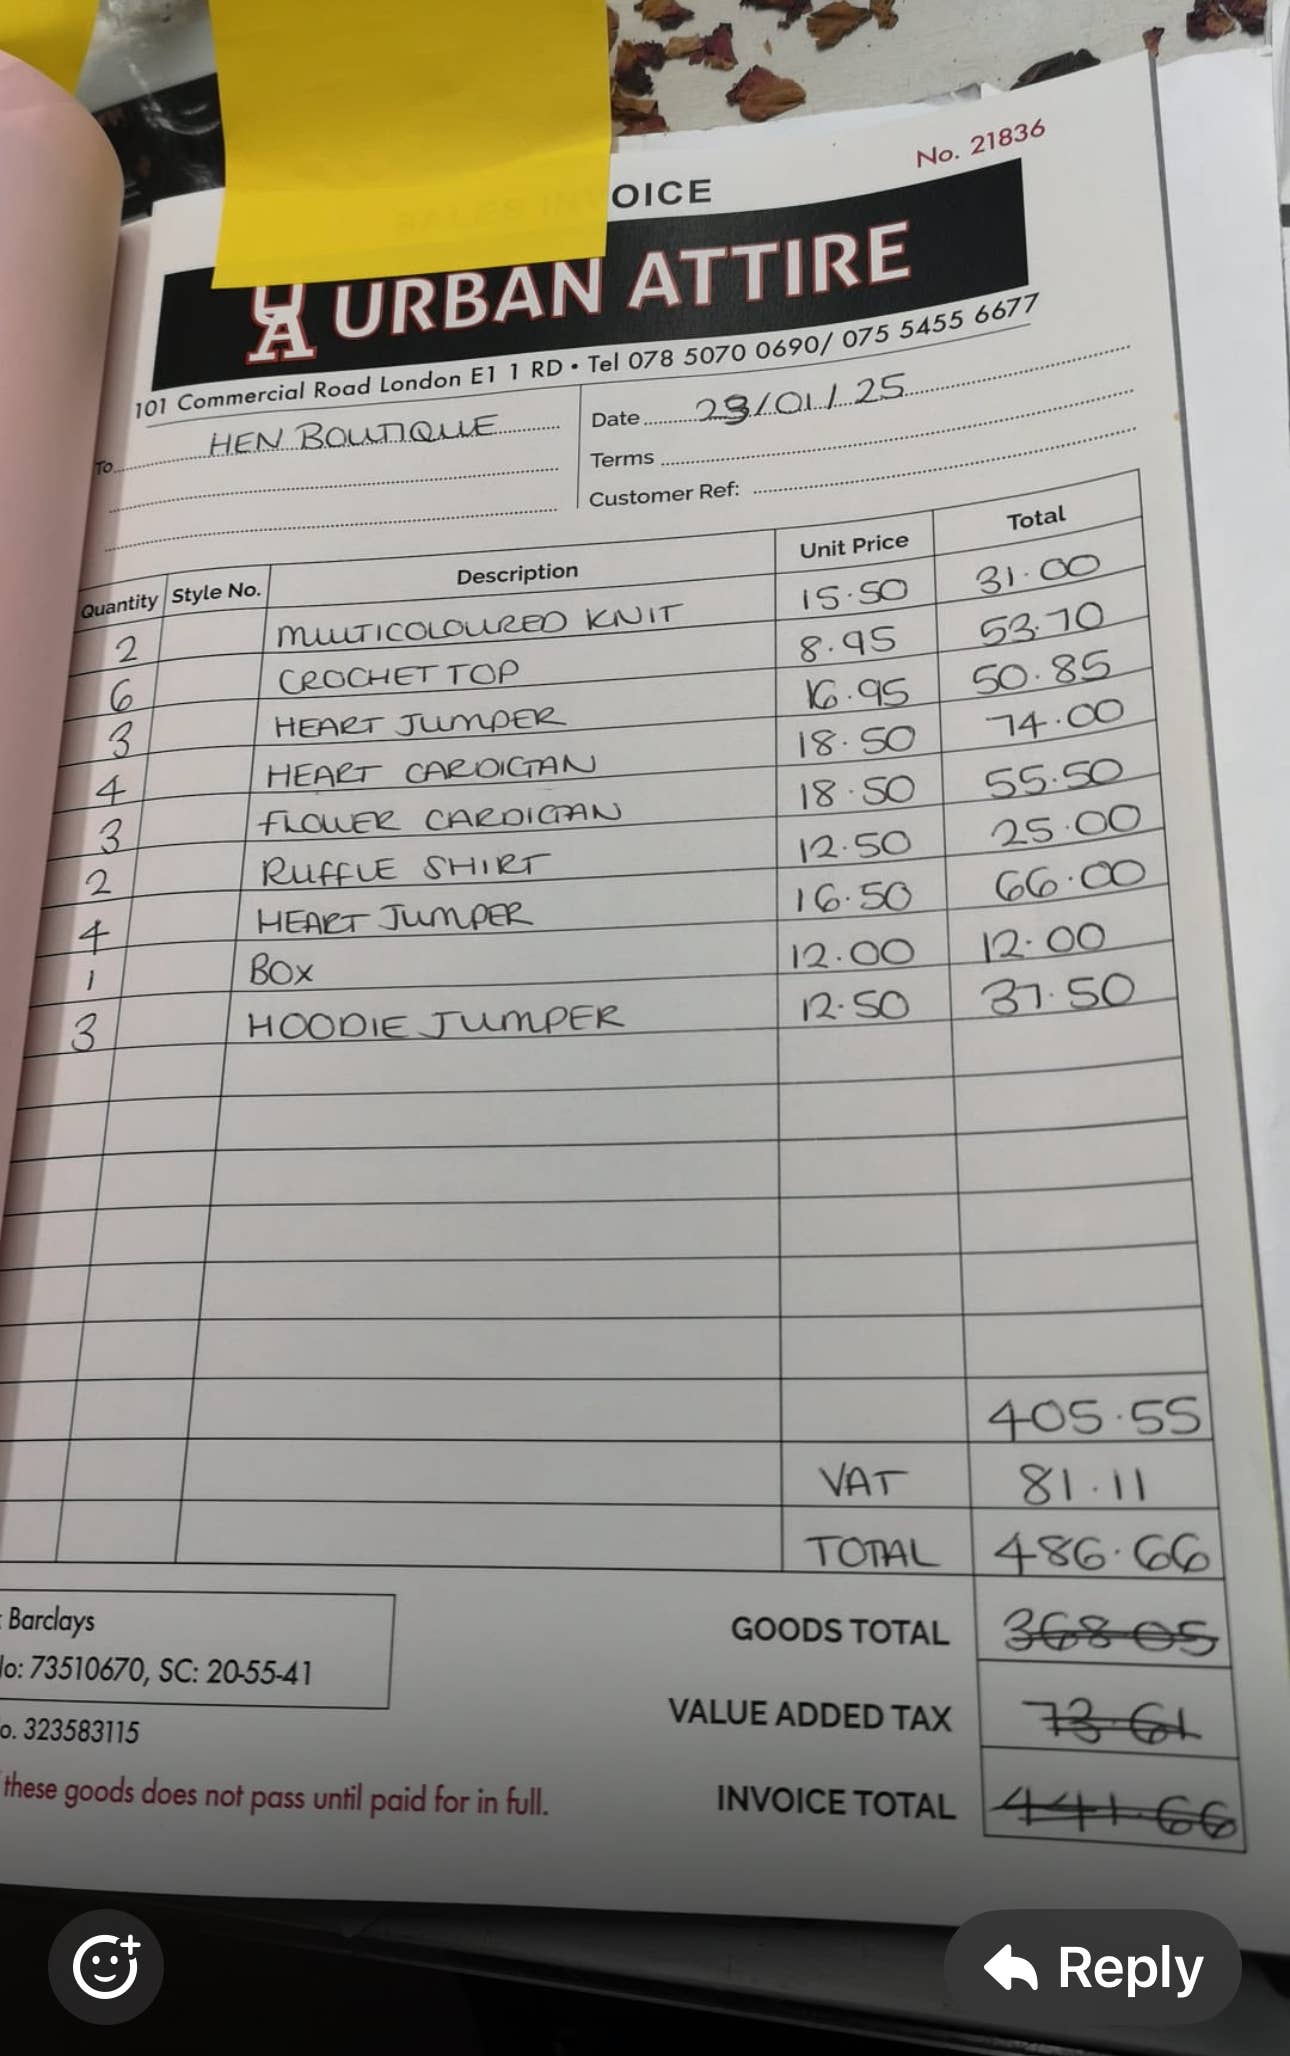 OICE
No. 21836
UA URBAN ATTIRE
101 Commercial Road London E1 1 RD • Tel 078 5070 0690/ 075 5455 6677
To HEN BOUTIQUE
Date 23/01/25
Terms
Customer Ref:
Quantity Style No. Description Unit Price Total
2 MULTICOLOURED KNIT 15.50 31.00
6 CROCHET TOP 8.95 53.70
3 HEART JUMPER 16.95 50.85
4 HEART CARDIGAN 18.50 74.00
3 FLOWER CARDIGAN 18.50 55.50
2 RUFFLE SHIRT 12.50 25.00
4 HEART JUMPER 16.50 66.00
1 BOX 12.00 12.00
3 HOODIE JUMPER 12.50 37.50
405.55
VAT 81.11
TOTAL 486.66
GOODS TOTAL 368.05
VALUE ADDED TAX 73.61
INVOICE TOTAL 441.66
: Barclays
lo: 73510670, SC: 20-55-41
o. 323583115
these goods does not pass until paid for in full.
Reply